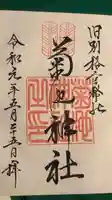 旧別格官幣社
菊池神社
令和元年五月二十五日拝